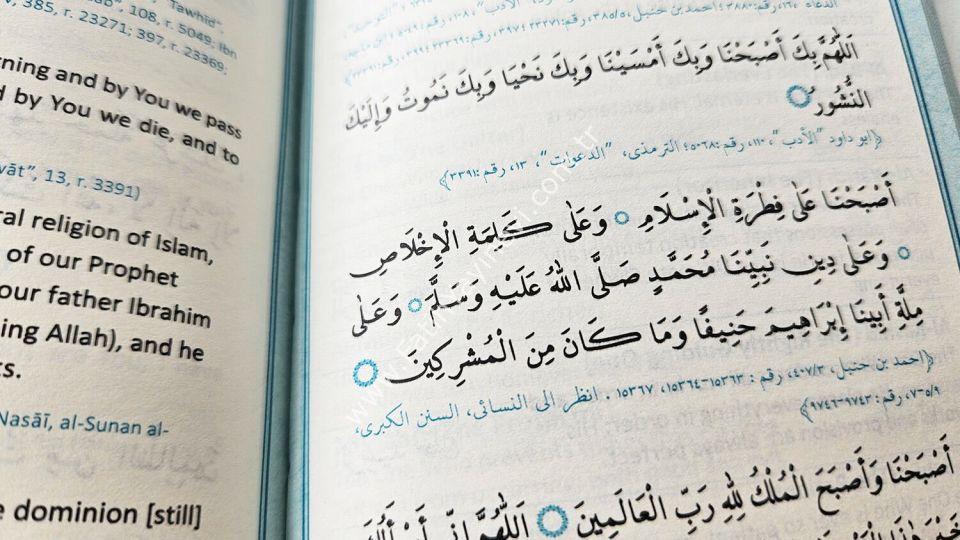 "Tawhid"
, 108, r. 5049; Ibn
V, 385, r. 23271; 397, r. 23369;
rning and by You we pass
d by You we die, and to
wāt", 13, r. 3391)
ral religion of Islam,
of our Prophet
our father Ibrahim
ing Allah), and he
ts.
Nasāī, al-Sunan al-
e dominion [still]
اَللّٰهُمَّ بِكَ أَصْبَحْنَا وَبِكَ أَمْسَيْنَا وَبِكَ نَحْيَا وَبِكَ نَمُوتُ وَإِلَيْكَ
النُّشُورُ
(ابو داود "الأدب"، ١١٠، رقم: ٥٠٦٨؛ الترمذى، "الدعوات"، ١٣، رقم: ٣٣٩١)
أَصْبَحْنَا عَلٰى فِطْرَةِ الْإِسْلَامِ وَعَلٰى كَلِمَةِ الْإِخْلَاصِ
وَعَلٰى دِينِ نَبِيِّنَا مُحَمَّدٍ صَلَّى اللهُ عَلَيْهِ وَسَلَّمَ وَعَلٰى
مِلَّةِ أَبِينَا إِبْرَاهِيمَ حَنِيفًا وَمَا كَانَ مِنَ الْمُشْرِكِينَ
(احمد بن حنبل، ٤٠٧/٣، رقم: ١٥٣٦٣-١٥٣٦٤، ١٥٣٦٧. انظر الى النسائى، السنن الكبرى،
٥/٩-٧، رقم: ٩٧٤٣-٩٧٤٦)
أَصْبَحْنَا وَأَصْبَحَ الْمُلْكُ لِلهِ رَبِّ الْعَالَمِينَ اَللّٰهُمَّ إِنِّي أَسْأَلُكَ